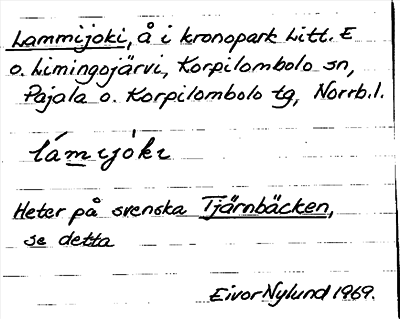 Lammijoki, å i kronopark Litt. E
o. Limingojärvi, Korpilombolo sn,
Pajala o. Korpilombolo tg, Norrb.l.
lámijòki
Heter på svenska Tjärnbäcken,
se detta
Eivor Nylund 1969.